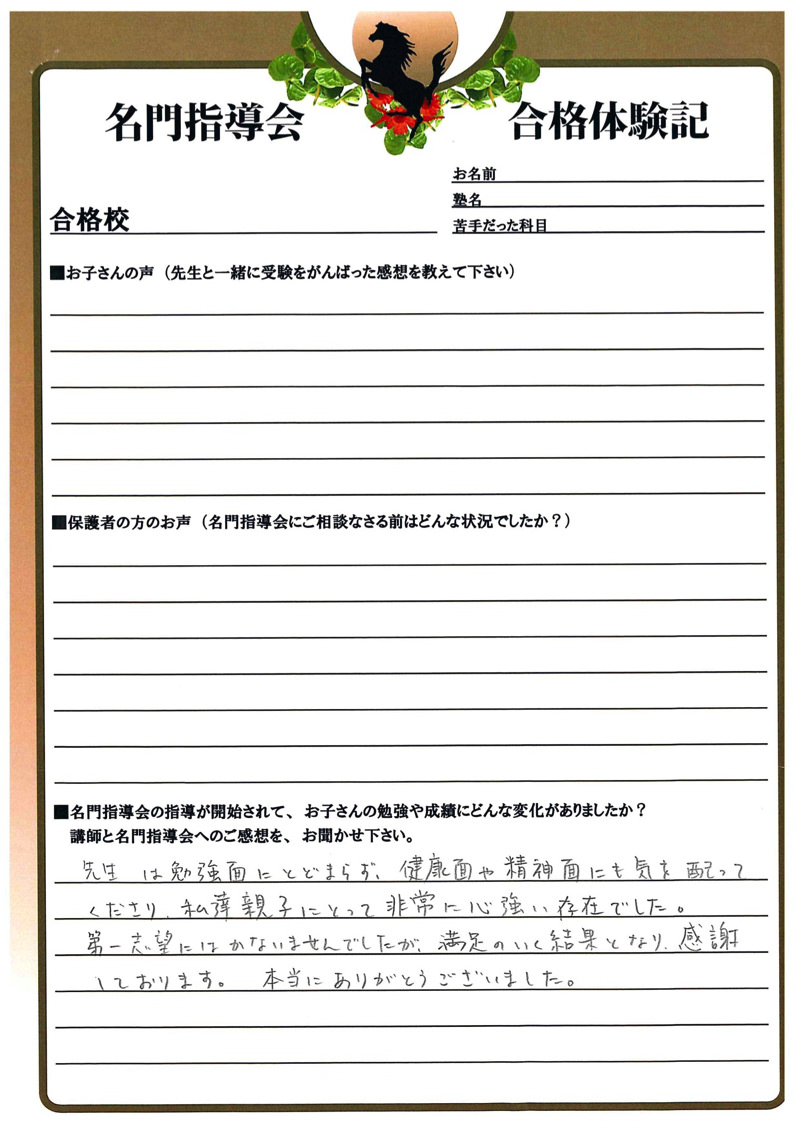 名門指導会 合格体験記
お名前
塾名
合格校
苦手だった科目
■お子さんの声（先生と一緒に受験をがんばった感想を教えて下さい）
■保護者の方のお声（名門指導会にご相談なさる前はどんな状況でしたか？）
■名門指導会の指導が開始されて、お子さんの勉強や成績にどんな変化がありましたか？
講師と名門指導会へのご感想を、お聞かせ下さい。
先生は勉強面にとどまらず、健康面や精神面にも気を配って
くださり、私達親子にとって非常に心強い存在でした。
第一志望にはかないませんでしたが、満足のいく結果となり、感謝
しております。 本当にありがとうございました。